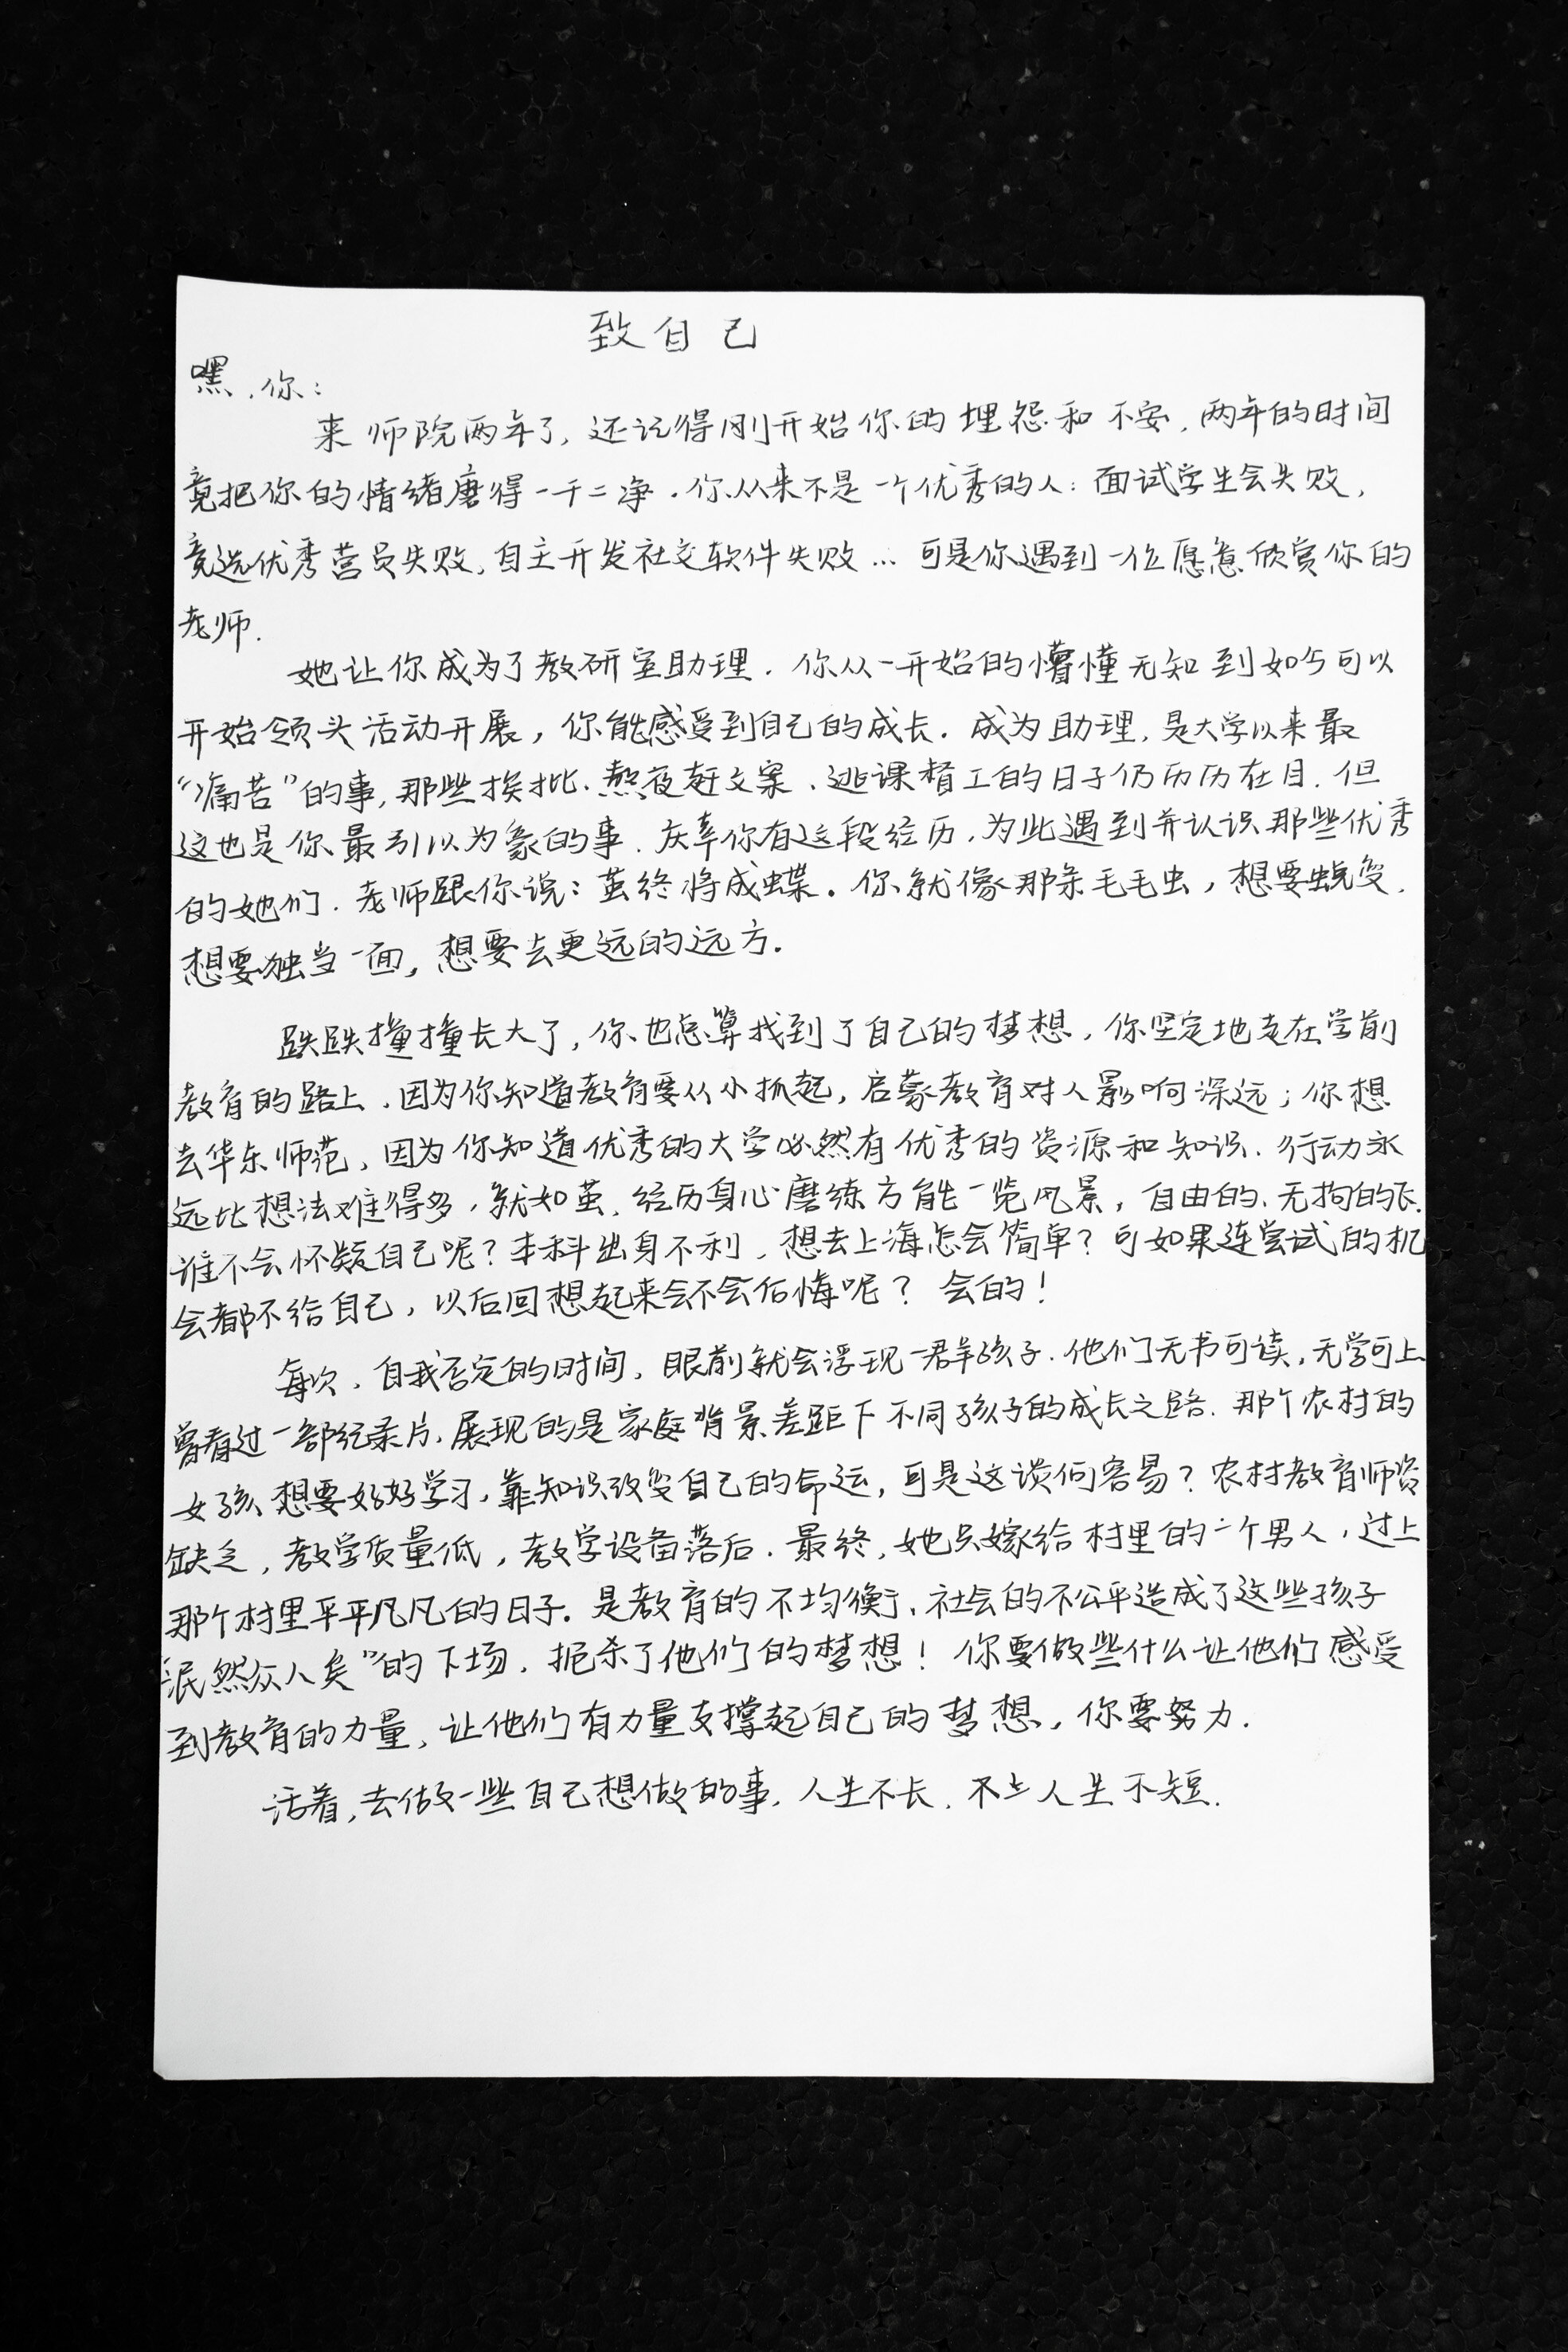 致自己
嘿,你:
来师院两年了,还记得刚开始你的埋怨和不安,两年的时间
竟把你的情绪磨得一干二净.你从来不是一个优秀的人:面试学生会失败,
竞选优秀营员失败,自主开发社交软件失败…可是你遇到一位愿意欣赏你的
老师.
她让你成为了教研室助理.你从一开始的懵懂无知到如今可以
开始领头活动开展,你能感受到自己的成长.成为助理,是大学以来最
“痛苦”的事,那些挨批、熬夜赶文案、逃课督工的日子仍历历在目.但
这也是你最引以为豪的事.庆幸你有这段经历,为此遇到并认识那些优秀
的她们.老师跟你说:茧终将成蝶.你就像那条毛毛虫,想要蜕变.
想要独当一面,想要去更远的远方.
跌跌撞撞长大了,你也总算找到了自己的梦想,你坚定地走在学前
教育的路上.因为你知道教育要从小抓起,启蒙教育对人影响深远;你想
去华东师范,因为你知道优秀的大学必然有优秀的资源和知识.行动永
远比想法难得多,就如茧,经历身心磨练方能一览风景,自由的、无拘的飞.
谁不会怀疑自己呢?本科出身不利,想去上海怎会简单?可如果连尝试的机
会都不给自己,以后回想起来会不会后悔呢?会的!
每次,自我否定的时间,眼前就会浮现一群孩子.他们无书可读,无学可上
曾看过一部纪录片,展现的是家庭背景差距下不同孩子的成长之路.那个农村的
女孩想要好好学习,靠知识改变自己的命运,可是这谈何容易?农村教育师资
缺乏,教学质量低,教学设备落后.最终,她只嫁给村里的一个男人,过上
那个村里平平凡凡的日子.是教育的不均衡、社会的不公平造成了这些孩子
泯然众人矣”的下场,扼杀了他们的梦想!你要做些什么让他们感受
到教育的力量,让他们有力量支撑起自己的梦想,你要努力.
活着,去做一些自己想做的事,人生不长,不与人生不短.